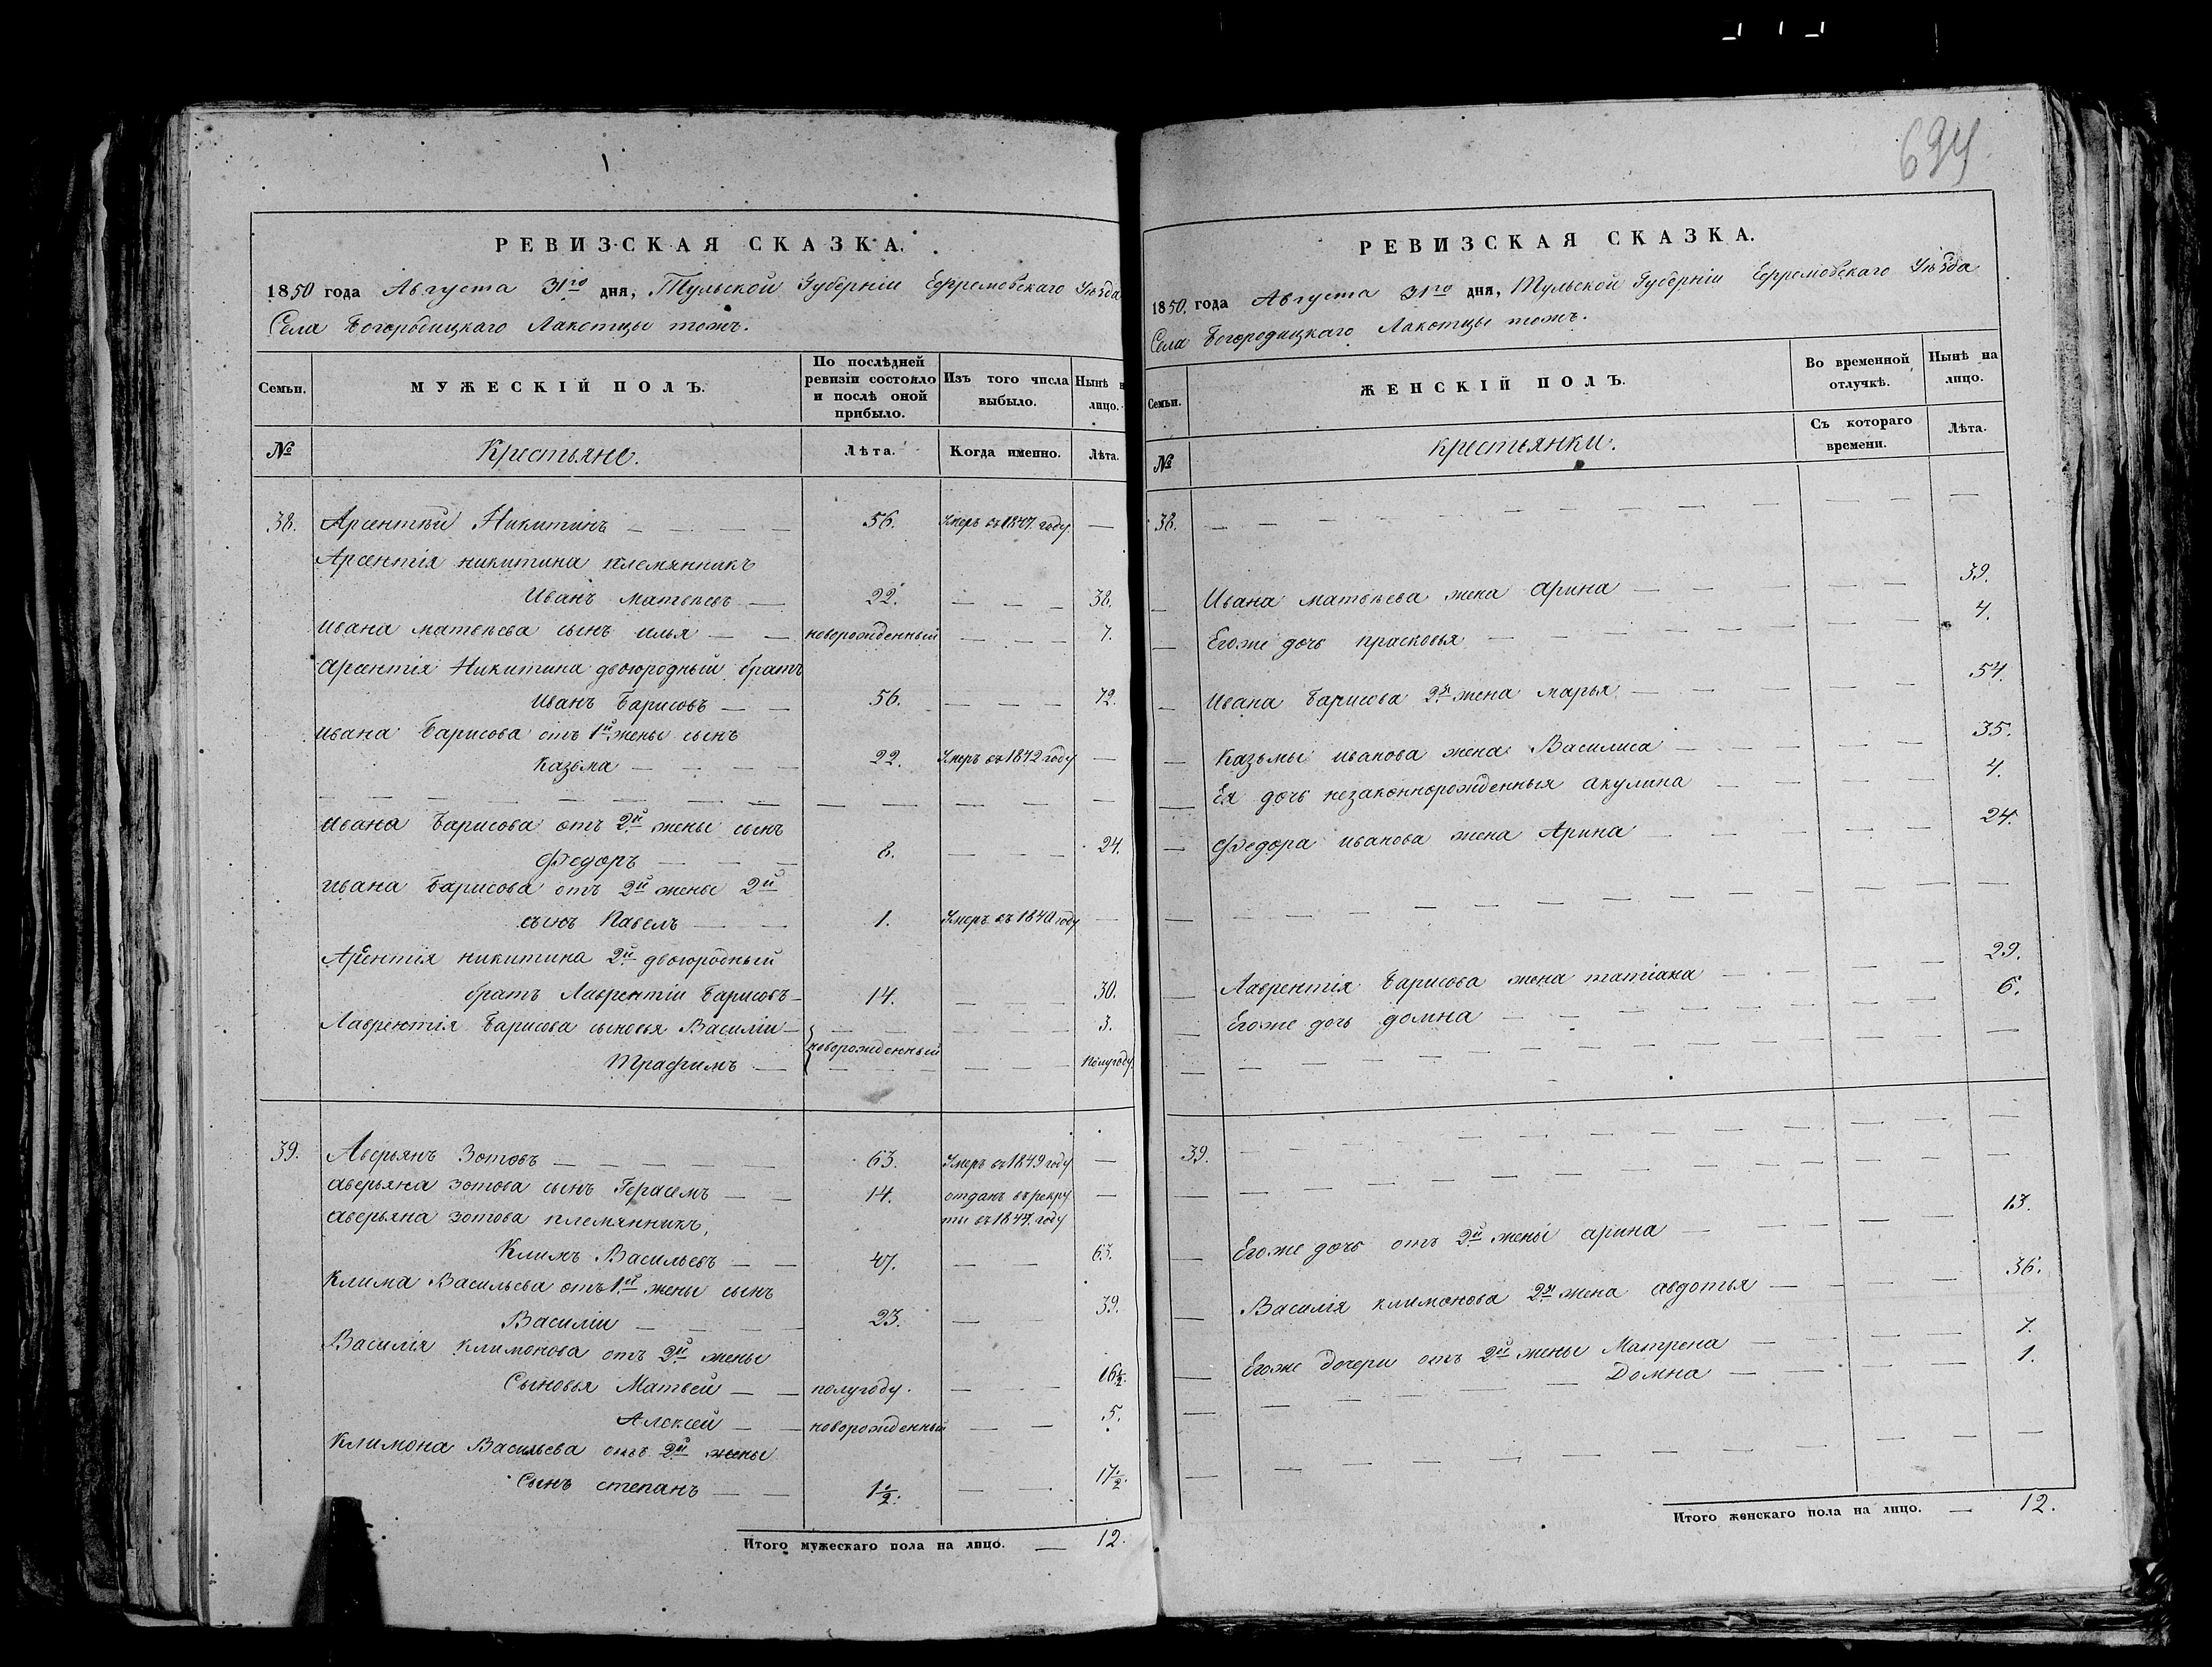 694
РЕВИЗСКАЯ СКАЗКА.
1850 года Августа 31го дня, Тульской Губернiи Ефремовскаго Уѣзда
Села Богородицкаго Лакотцы тожъ.
Семьи.
МУЖЕСКIЙ ПОЛЪ.
По послѣдней ревизiи состояло и послѣ оной прибыло.
Изъ того числа выбыло.
Нынѣ на лицо.
№
Крестьяне.
Лѣта.
Когда именно.
Лѣта.
38. Арсентiй Никитинъ — 56. Умеръ въ 1847. году —
Арсентiя никитина племянникъ
Иванъ матвѣевъ — 22. — 38.
Ивана матвѣева сынъ илья — новорожденный — 7.
Арсентiя Никитина двоюродный братъ
Иванъ Барисовъ — 56. — 72.
Ивана Барисова отъ 1й жены сынъ
Казьма — 22. Умеръ въ 1842 году —
Ивана Барисова отъ 2й жены сынъ
Федоръ — 8. — 24.
Ивана Барисова отъ 2й жены 2й
сынъ Павелъ — 1. Умеръ въ 1840 году —
Арсентiя никитина 2й двоюродный
братъ Лаврентiй Барисовъ — 14. — 30.
Лаврентiя Барисова сыновья Василiй — 3.
новорожденный
Трафимъ — полугоду
39. Аверьянъ Зотовъ — 63. Умеръ въ 1849 году —
аверьяна зотова сынъ Герасемъ — 14. отданъ въ рекру —
аверьяна зотова племянникъ, ты въ 1847. году
Климъ Васильевъ — 47. — 63.
Клима Васильева отъ 1й жены сынъ
Василiй — 23. — 39.
Василiя климонова отъ 2й жены
Сыновья Матвей — полугоду — 16½.
Алексей — новорожденный — 5.
Климона Васильева отъ 2й жены
Сынъ степанъ — 1½. — 17½.
Итого мужескаго пола на лицо. — 12.
РЕВИЗСКАЯ СКАЗКА.
1850. года Августа 31го дня, Тульской Губернiи Ефремовскаго Уѣзда
Села Богородицкаго Лакотцы тожъ.
Семьи.
ЖЕНСКIЙ ПОЛЪ.
Во временной отлучкѣ.
Нынѣ на лицо.
№
крестьянки.
Съ котораго времени.
Лѣта.
38. —
Ивана матвѣева жена Арина — 39.
Егоже дочь прасковья — 4.
Ивана Барисова 2я жена марья — 54.
Казьмы иванова жена Василиса — 35.
Ея дочь незаконнорожденныя акулина — 4.
Федора иванова жена Арина — 24.
Лаврентiя Барисова жена татiана — 29.
Егоже дочь домна — 6.
39. —
Егоже дочь отъ 2й жены арина — 13.
Василiя климонова 2я жена авдотья — 36.
Егоже дочери отъ 2й жены Матрена — 7.
Домна — 1.
Итого женскаго пола на лицо. — 12.